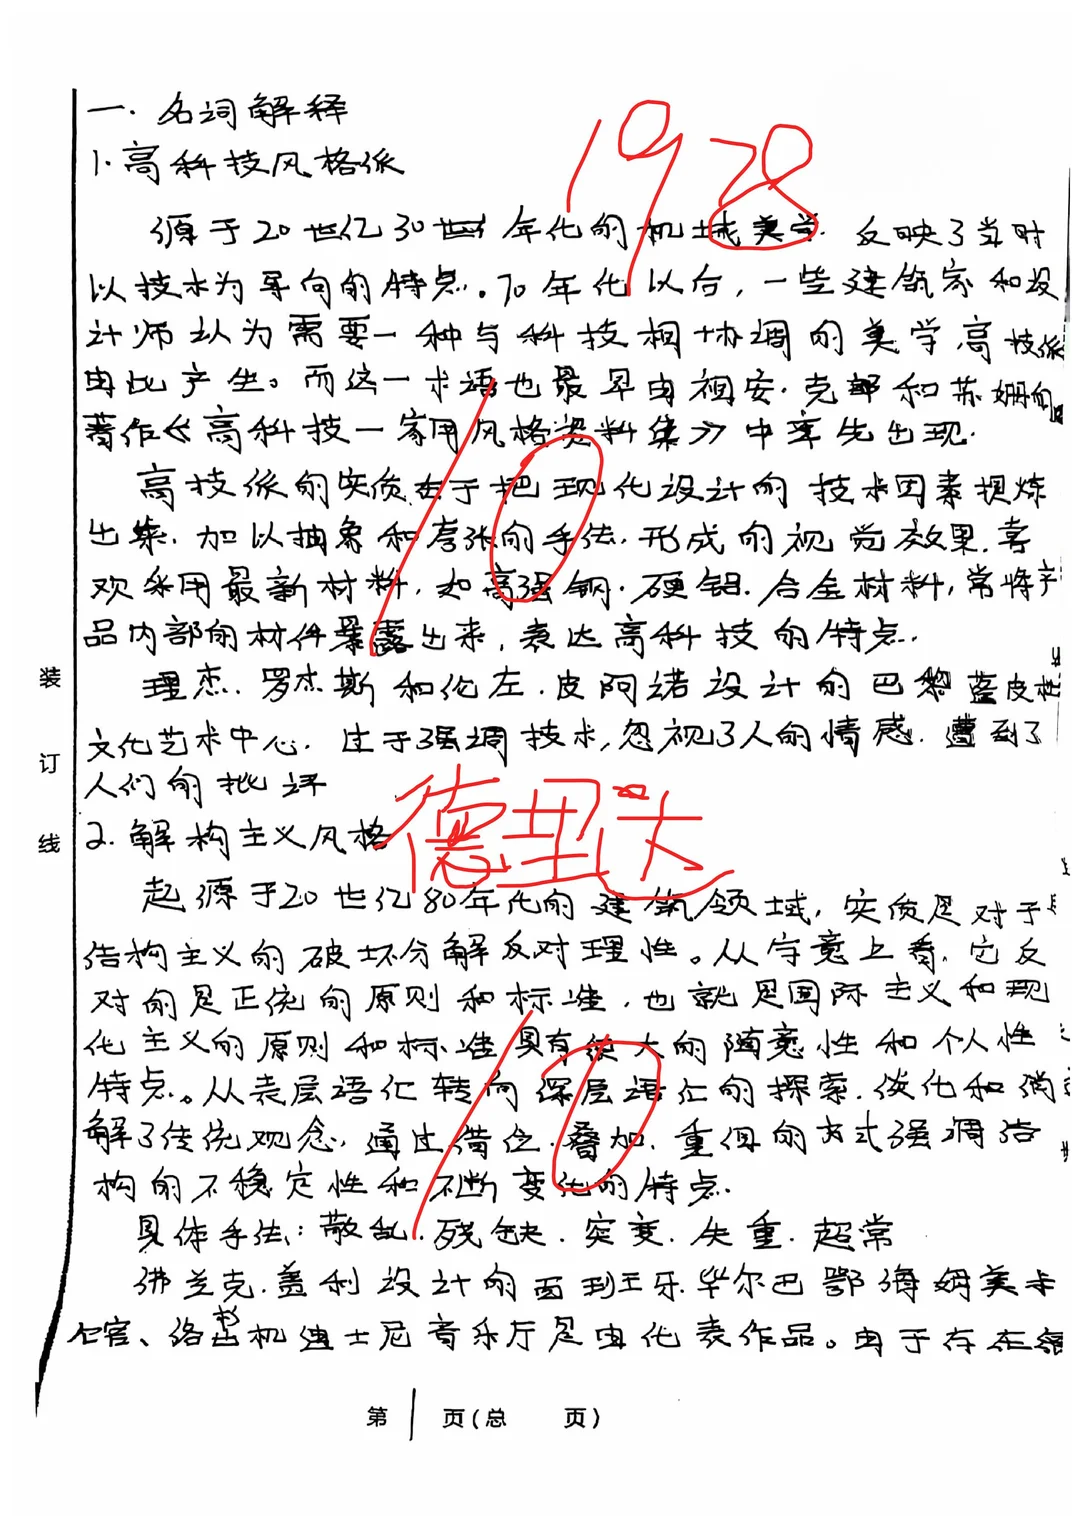 一.名词解释
1.高科技风格派
1928
源于20世亿30世年化的机械美学.反映了当时
以技术为导向的特点.70年化以台,一些建筑家和设
计师认为需要一种与科技相协调的美学,高技派
由此产生。而这一术语也最早由祖安.克部和苏姗的
著作《高科技一家用风格资料集》中率先出现.
高技派的实质在于把现化设计的技术因素提炼
出来.加以抽象和夸张的手法.形成的视觉效果.喜
欢采用最新材料,如高强钢.硬铝.合金材料,常将产
品内部的材件暴露出来,表达高科技的特点.
10
理杰.罗杰斯和伦左.皮阿诺设计的巴黎蓝皮杜
文化艺术中心.过于强调技术,忽视了人的情感.遭到了
人们的批评
2.解构主义风格
德里达
起源于20世亿80年化的建筑领域,实质是对于
结构主义的破坏分解反对理性。从字意上看,它反
对的是正统的原则和标准,也就是国际主义和现
化主义的原则和标准具有很大的随意性和个人性
特点。从表层语汇转向深层语汇的探索.淡化和消
解了传统观念,通过错位.叠加.重组的方式强调结
构的不稳定性和不断变化的特点.
10
具体手法:散乱.残缺.突变.失重.超常
佛兰克.盖利设计的西班王牙毕尔巴鄂海姆美卡
官、洛杉机迪士尼音乐厅是由化表作品。由于存在
装
订
线
第1页(总 页)